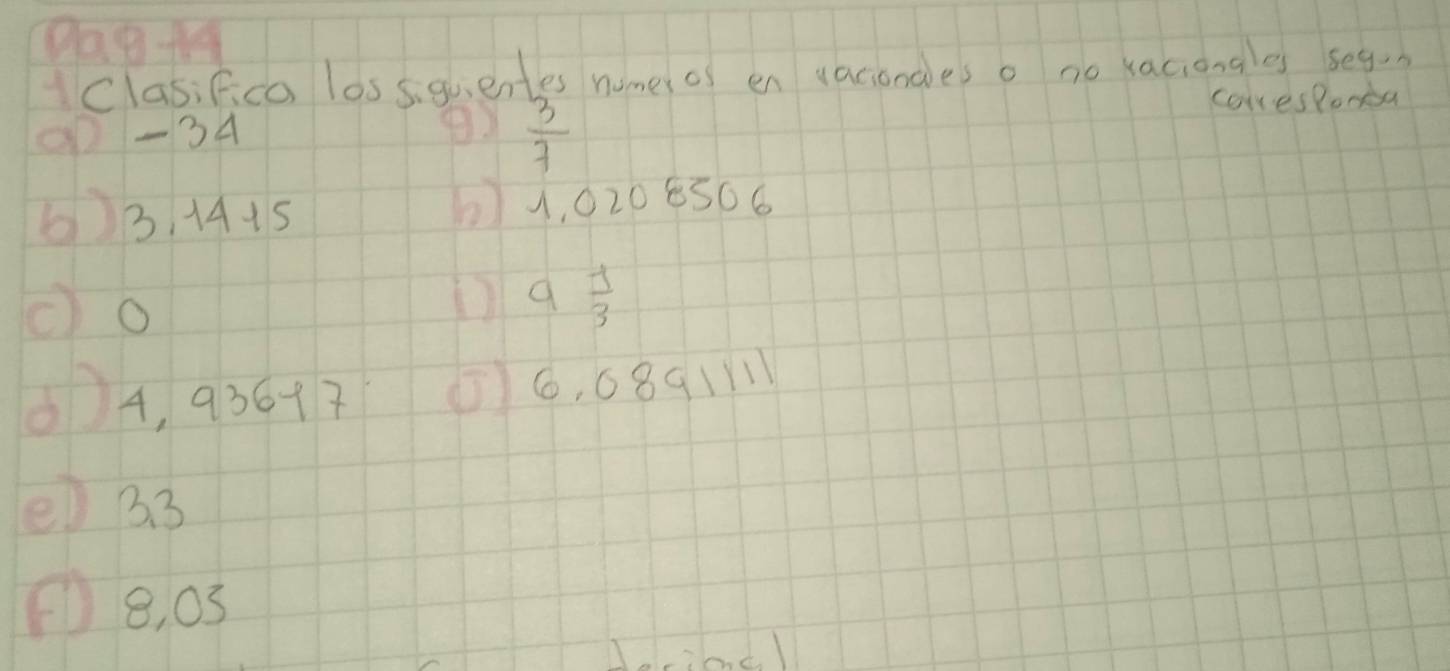 Pag 14
1 Clasifica los siguientes numeros en racionales o no racionales segun
corresponda
a) -34
g) 3/7
b) 3,1415
h) 1,0208506
c) 0
i) 9 1/3
d) 4,93617
j) 6,0891111
e) 3,3
f) 8,05